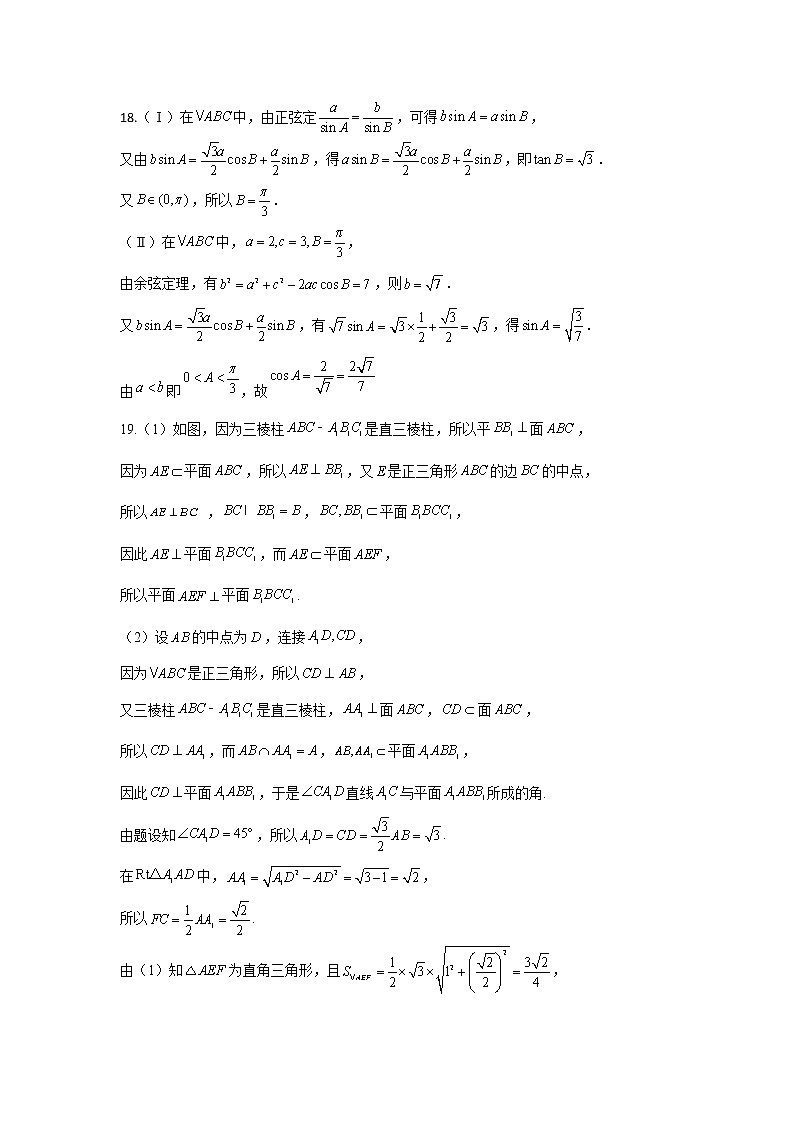 18.(Ⅰ)在VABC中，由正弦定 a/sin A = b/sin B，可得 b sin A = a sin B，
又由 b sin A = √3a/2 cos B + a/2 sin B，得 a sin B = √3a/2 cos B + a/2 sin B，即 tan B = √3．
又 B∈(0,π)，所以 B = π/3．
(Ⅱ)在VABC中，a = 2,c = 3,B = π/3，
由余弦定理，有 b² = a² + c² − 2ac cos B = 7，则 b = √7．
又 b sin A = √3a/2 cos B + a/2 sin B，有 √7 sin A = √3 × 1/2 + √3/2 = √3，得 sin A = √(3/7)．
由 a < b 即 0 < A < π/3，故 cos A = 2/√7 = 2√7/7
19.(1)如图，因为三棱柱 ABC − A₁B₁C₁ 是直三棱柱，所以平 BB₁ ⊥ 面 ABC，
因为 AE ⊂ 平面 ABC，所以 AE ⊥ BB₁，又 E 是正三角形 ABC 的边 BC 的中点，
所以 AE ⊥ BC ，BC I BB₁ = B，BC, BB₁ ⊂ 平面 B₁BCC₁，
因此 AE ⊥ 平面 B₁BCC₁，而 AE ⊂ 平面 AEF，
所以平面 AEF ⊥ 平面 B₁BCC₁．
(2)设 AB 的中点为 D，连接 A₁D, CD，
因为 VABC 是正三角形，所以 CD ⊥ AB，
又三棱柱 ABC − A₁B₁C₁ 是直三棱柱，AA₁ ⊥ 面 ABC，CD ⊂ 面 ABC，
所以 CD ⊥ AA₁，而 AB ∩ AA₁ = A，AB, AA₁ ⊂ 平面 A₁ABB₁，
因此 CD ⊥ 平面 A₁ABB₁，于是 ∠CA₁D 直线 A₁C 与平面 A₁ABB₁ 所成的角.
由题设知 ∠CA₁D = 45°，所以 A₁D = CD = √3/2 AB = √3．
在 Rt△A₁AD 中，AA₁ = √(A₁D² − AD²) = √(3−1) = √2，
所以 FC = 1/2 AA₁ = √2/2．
由(1)知 △AEF 为直角三角形，且 S_VAEF = 1/2 × √3 × √(1² + (√2/2)²) = 3√2/4，